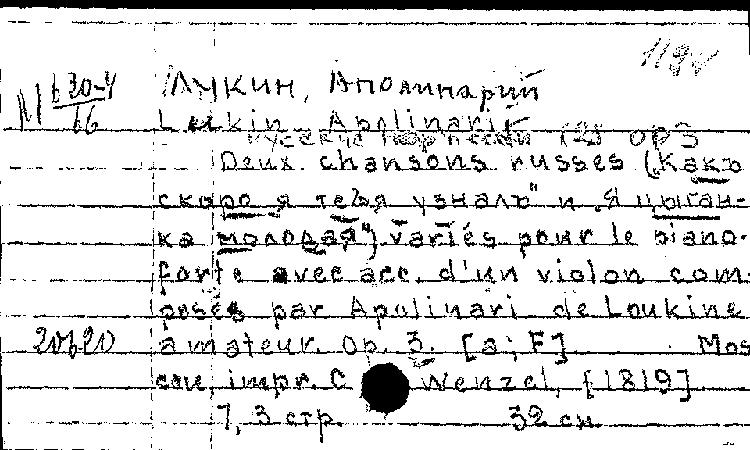 1194
М 630-4
66
Лукин, Аполинарий
Loukin, Apolinarii
русские нар песни (2) op 3
Deux chansons russes (Какъ
скоро я тебя узналъ" и "Я цыган-
ка молодая") variés pour le piano-
forte avec acc. d'un violon com-
posés par Apolinari de Loukine
20620 amateur. Op. 3. [a; F] Mos
cou, impr. C Wenzel, [1819]
7, 3 стр. 32 см.